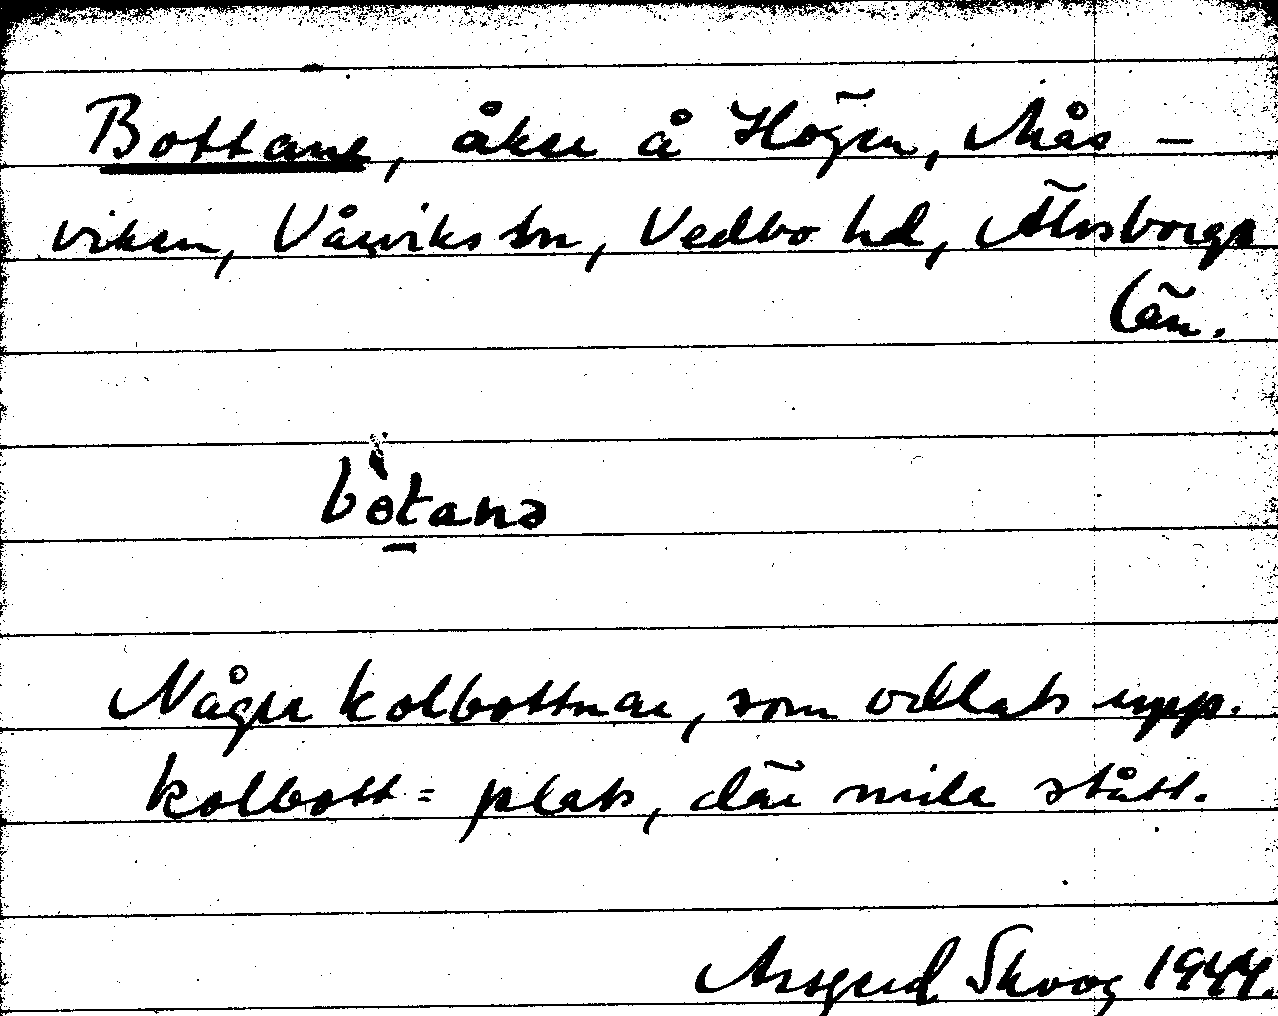 Bottane, åker å Högen, Mås-
viken, Vårviks sn, Vedbo hd, Älvsborgs
län.
bòtanə
Några kolbottnar, som odlats upp.
kolbott = plats, där mila stått.
Asgerd Skoog 1944.